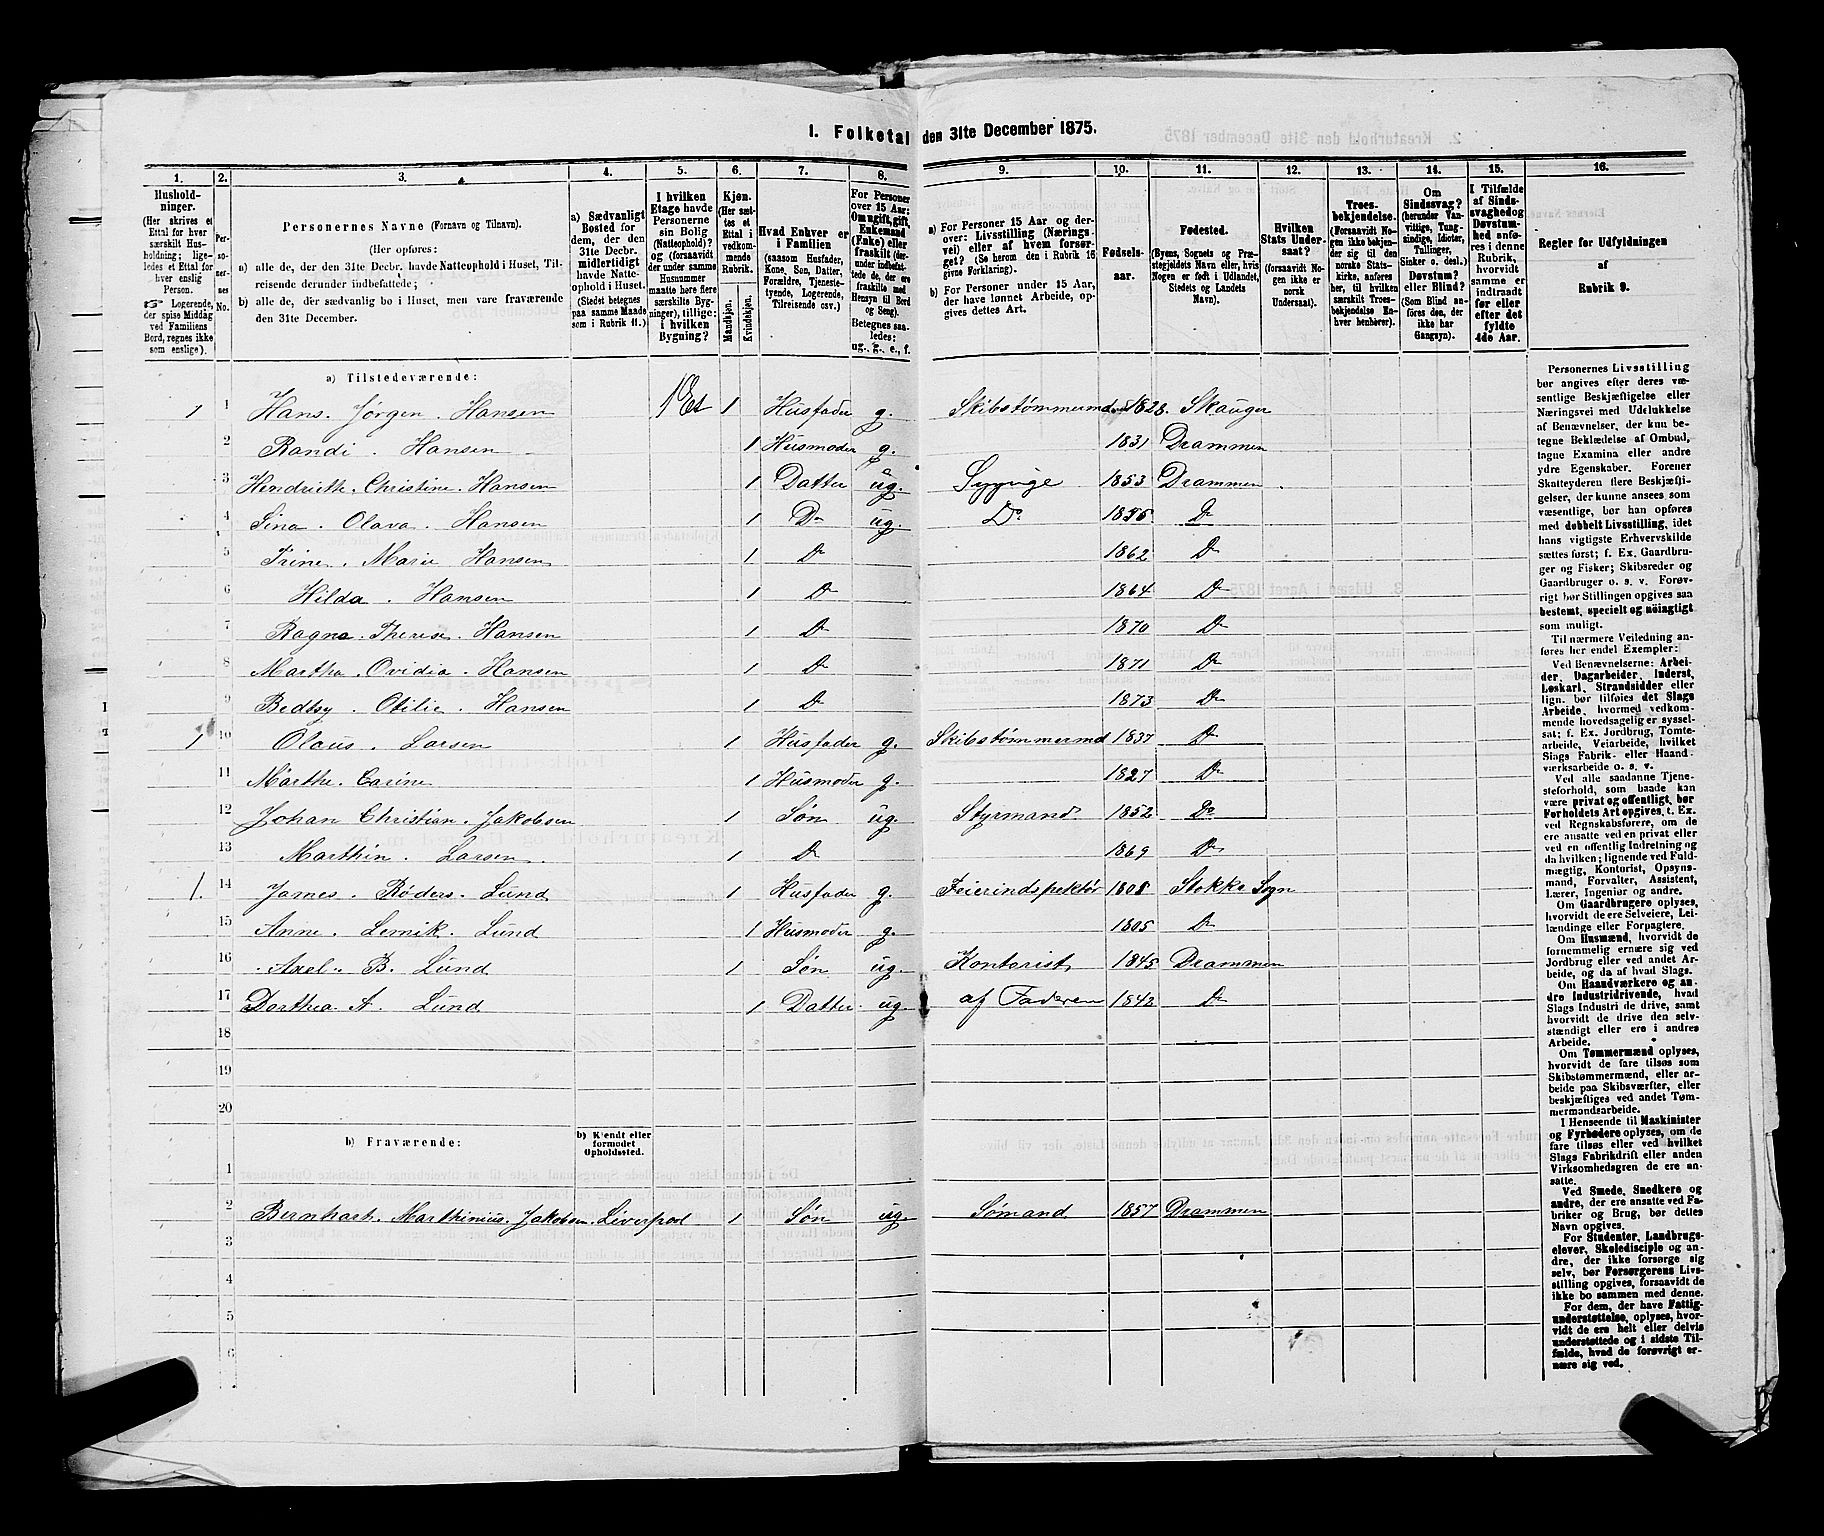 1. Folketal den 31te December 1875.
1. 2. 3. 4. 5. 6. 7. 8. 9. 10. 11. 12. 13. 14. 15. 16.
Hushold-
ninger.
(Her skrives et
Ettal for hver
særskilt Hus-
holdning; lige-
ledes et Ettal for
hver enslig
Person.
☞ Logerende,
der spise Middag
ved Familiens
Bord, regnes ikke
som enslige).
Per-
so-
ner-
nes
No.
Personernes Navne (Fornavn og Tilnavn).
(Her opføres:
a) alle de, der den 31te Decbr. havde Natteophold i Huset, Til-
reisende derunder indbefattede;
b) alle de, der sædvanlig bo i Huset, men vare fraværende
den 31te December.
a) Sædvanligt
Bosted for
dem, der den
31te Decbr.
midlertidigt
havde Natte-
ophold i Huset.
(Stedet betegnes
paa samme Maade
som i Rubrik 11.)
I hvilken
Etage havde
Personerne
sin Bolig
(Natteophold)?
og (forsaavidt
der under samme
Husnummer
maatte høre flere
særskilte Byg-
ninger), tillige:
i hvilken
Bygning?
Kjøn.
(Her sæt-
tes et
Ettal i
vedkom-
mende
Rubrik.
Mandkjøn.
Kvindekjøn.
Hvad Enhver er
i Familien
(saasom Husfader,
Kone, Søn, Datter,
Forældre, Tjeneste-
tyende, Logerende,
Tilreisende osv.)
For Personer
over 15 Aar:
Om ugift, gift,
Enkemand
(Enke) eller
fraskilt (der-
under indbefat-
tede de, der ere
fraskilte med
Hensyn til Bord
og Seng).
Betegnes saa-
ledes:
ug., g., e., f.
a) For Personer 15 Aar og der-
over: Livsstilling (Nærings-
vei) eller af hvem forsør-
get? (Se herom den i Rubrik 16
givne Forklaring).
b) For Personer under 15 Aar,
der have lønnet Arbeide, op-
gives dettes Art.
Fødsels-
aar.
Fødested.
(Byens, Sognets og Præ-
stegjeldets Navn eller, hvis
Nogen er født i Udlandet,
Stedets og Landets
Navn).
Hvilken
Stats Under-
saat?
(forsaavidt No-
gen ikke er
norsk
Undersaat).
Troes-
bekjendelse.
(Forsaavidt No-
gen ikke bekjen-
der sig til den
norske Stats-
kirke, anføres
her, til hvilken
særskilt Troes-
bekjendelse En-
hver henhører).
Om
Sindssvag?
(herunder Van-
vittige, Tung-
sindige, Idioter,
Tullinger,
Sinker o. desl.)
Døvstum?
eller Blind?
(Som Blind an-
føres den, der
ikke har
Gangsyn).
I Tilfælde
af Sinds-
svaghed og
Døvstum-
hed anfø-
res i denne
Rubrik,
hvorvidt
samme er
indtraadt
før eller
efter det
fyldte
4de Aar.
Regler for Udfyldningen
af
Rubrik 9.
a) Tilstedeværende:
1 1 Hans. Jørgen. Hansen 1 Et 1 Husfader g. Skibstømmermd 1828. Skauger
2 Randi. Hansen 1 Husmoder g. 1831 Drammen
3 Hendriette. Christine. Hansen 1 Datter ug. Sypige 1853 Drammen
4 Sina. Olava. Hansen 1 Do ug. Do Do
5 Trine. Marie Hansen 1 Do 1862 Do
6 Hilda. Hansen 1 Do 1864 Do
7 Ragna. Therese. Hansen 1 Do 1870 Do
8 Martha. Ovidia. Hansen 1 Do 1871 Do
9 Bedtsy. Otilie. Hansen 1 Do 1873 Do
1 10 Olaus. Larsen 1 Husfader g. Skibstømmermd 1837 Do
11 Marthe. Carine 1 Husmoder g. 1827 Do
12 Johan Christian. Jakobsen 1 Søn ug. Styrmand 1852 Do
13 Marthin. Larsen. 1 Do 1869 Do
1. 14 James. Røders. Lund 1 Husfader g. Feierindspektør 1808 Stokke Sogn
15 Anne. Lemik. Lund 1 Husmoder g. 1805 Do
16 Axel. B. Lund 1 Søn ug. Kontorist 1845 Drammen
17 Dorthea. A. Lund 1 Datter. ug. af Faderen 1842 Do
18
19
20
b) Fraværende:
b) Kjendt eller
formodet
Opholdssted.
1
2 Bernhart. Marthinius. Jakobsen. Liverpool 1 Søn ug. Sømand 1857 Drammen
3
4
5
6
Personernes Livsstilling
bør angives efter deres væ-
sentlige Beskjæftigelse eller
Næringsvei med Udelukkelse
af Benævnelser, der kun be-
tegne Beklædelse af Ombud,
tagne Examina eller andre
ydre Egenskaber. Forener
Skatteyderen flere Beskjæfti-
gelser, der kunne ansees som
væsentlige, bør han opføres
med dobbelt Livsstilling, idet
hans vigtigste Erhvervskilde
sættes først; f. Ex. Gaardbru-
ger og Fisker; Skibsreder og
Gaardbruger o. s. v. Forøv-
rigt bør Stillingen opgives saa
bestemt, specielt og nöiagtigt
som muligt.
Til nærmere Veiledning an-
føres her endel Exempler:
Ved Benævnelserne: Arbei-
der, Dagarbeider, Inderst,
Løskarl, Strandsidder eller
lign. bør tilføies det Slags
Arbeide, hvormed vedkom-
mende hovedsagelig er syssel-
sat; f. Ex. Jordbrug, Tomte-
arbeide, Veiarbeide, hvilket
Slags Fabrik- eller Haand-
værksarbeide o. s. v.
Ved alle saadanne Tjene-
steforhold, som baade kan
være privat og offentligt, bør
Forholdets Art opgives, t. Ex.
ved Regnskabsførere, om de
ere ansatte ved en privat eller
ved en offentlig Indretning og
da hvilken; lignende ved Fuld-
mægtig, Kontorist, Opsyns-
mand, Forvalter, Assistent,
Lærer, Ingeniør og andre.
Om Gaardbrugere oplyses,
hvorvidt de ere Selveiere, Lei-
lændinge eller Forpagtere.
Om Husmænd, hvorvidt de
fornemmelig ernære sig ved
Jordbrug eller ved andet Ar-
beide, og da af hvad Slags.
Om Haandværkere og an-
dre Industridrivende, hvad
Slags Industri de drive, samt
hvorvidt de drive den selv-
stændigt eller ere i andres
Arbeide.
Om Tømmermænd oplyses,
hvorvidt de fare tilsøs som
Skibstømmermænd, eller ar-
beide paa Skibsværfter, eller
beskjæftiges ved andet Tøm-
mermandsarbeide.
I Henseende til Maskinister
og Fyrbødere oplyses, om de
fare tilsøs eller ved hvilket
Slags Fabrikdrift eller anden
Virksomhedsgren de ere an-
satte.
Ved Smede, Snedkere og
andre, der ere ansatte ved Fa-
briker og Brug, bør dettes
Navn opgives.
For Studenter, Landbrugs-
elever, Skoledisciple og an-
dre, der ikke forsørge sig
selv, bør Forsørgerens Livs-
stilling opgives, forsaavidt de
ikke bo sammen med denne.
For dem, der have Fattig-
understøttelse, oplyses, hvor-
vidt de ere helt eller delvis
understøttede og i sidste Til-
fælde, hvad de forøvrigt er-
nære sig ved.